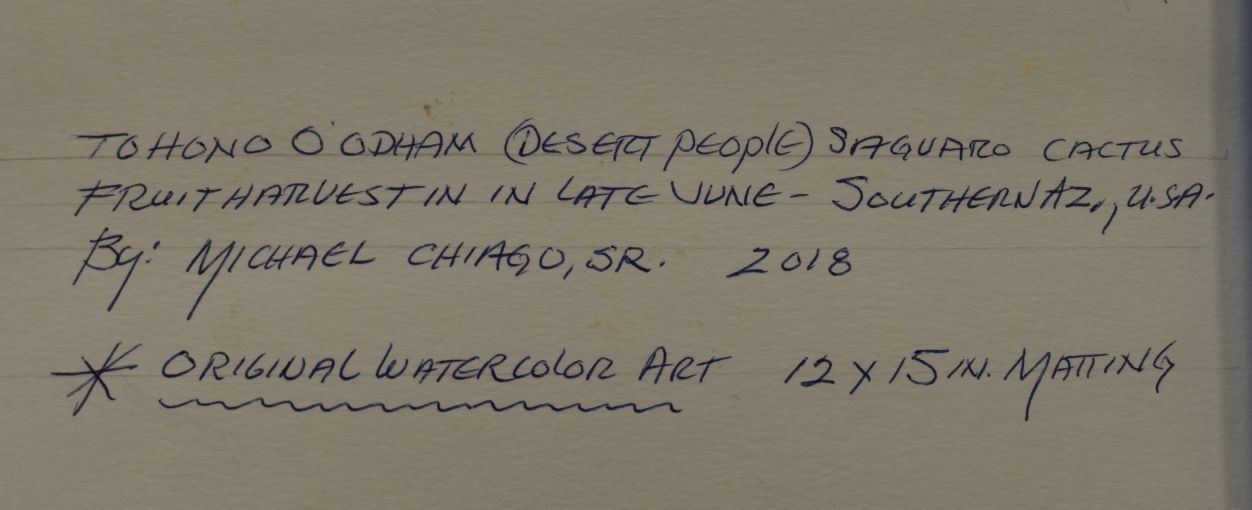 TOHONO O'ODHAM (DESERT PEOPLE) SAGUARO CACTUS
FRUIT HARVESTIN IN LATE JUNE - SOUTHERN AZ., U.SA.
By: MICHAEL CHIAGO, SR. 2018
* ORIGINAL WATERCOLOR ART 12 X 15 IN. MATTING